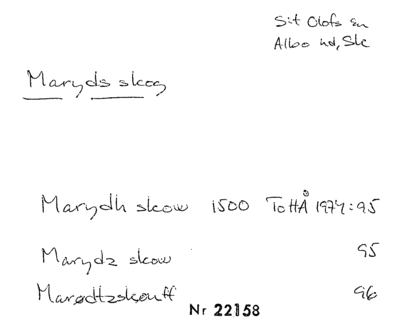 S:t Olofs sn
Albo hd, Skc
Maryds skog
Marydh skow 1500 ToHÅ 1974:95
Marydz skow 95
Marødtzskouff 96
Nr 22158